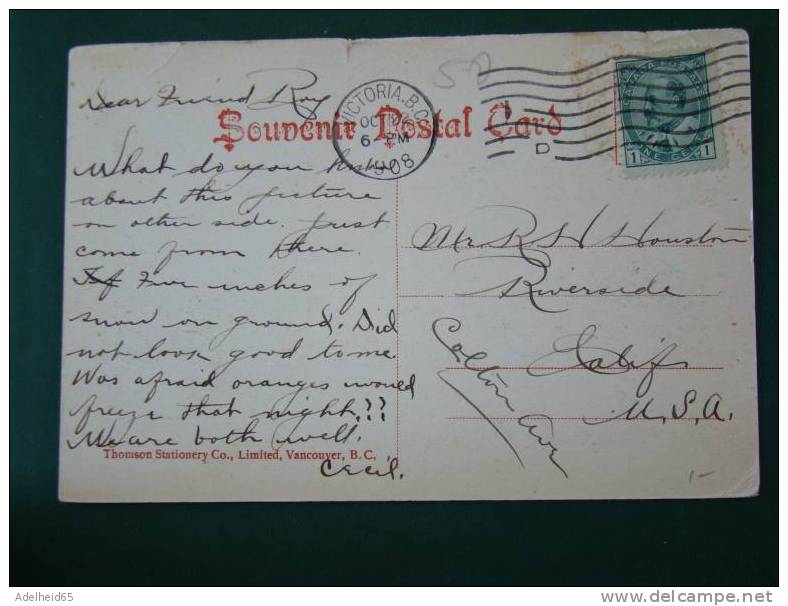 Dear Friend Roy
Souvenir Postal Card
VICTORIA. B.C.
OCT
6- PM
1908
D
CANADA POSTAGE
1 ONE CENT 1
What do you think
about this picture
on other side. Just
come from there.
Five inches of
snow on ground. Did
not look good to me.
Was afraid oranges would
freeze that night.??
We are both well.
Cecil.
Thomson Stationery Co., Limited, Vancouver, B. C.
Mr R H Houston
Riverside
Calif
U.S.A.
Colton Ave
1-
Adelheid65
delcampe.net